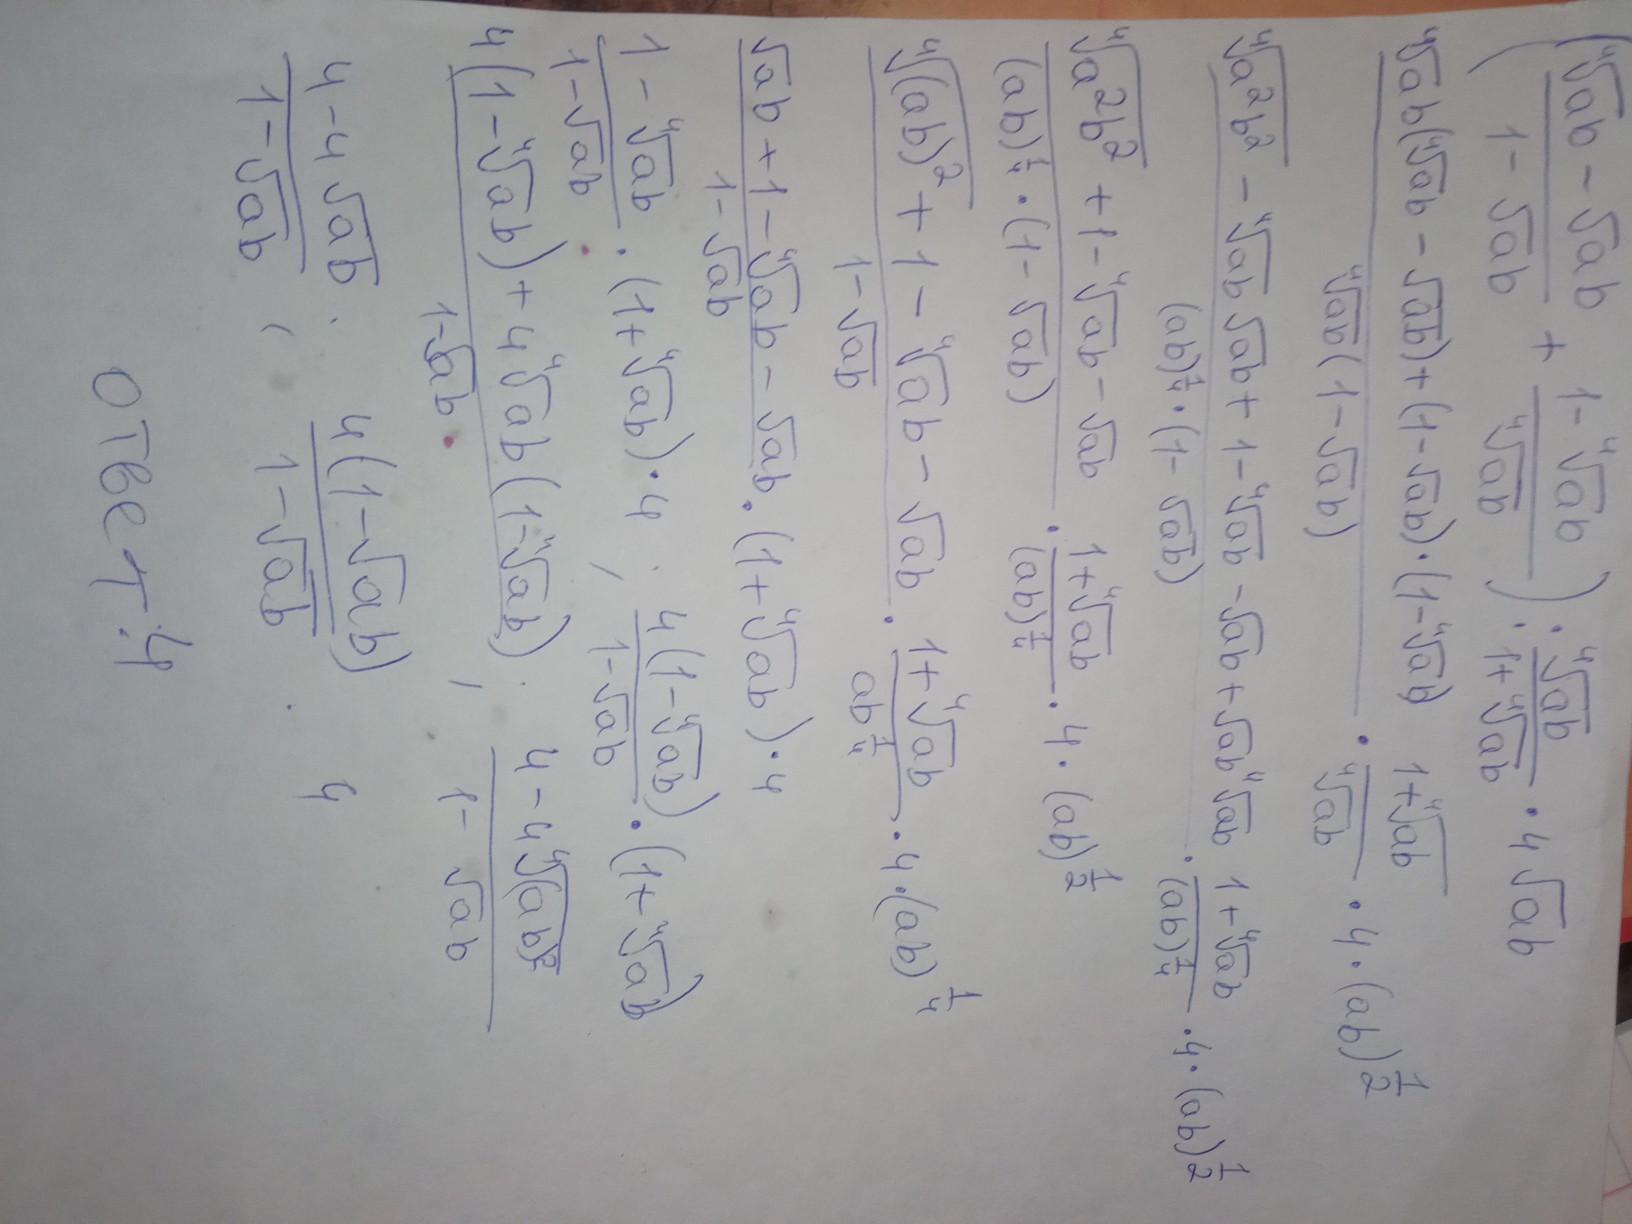 (⁴√ab - √ab / 1 - √ab + 1 - ⁴√ab / ⁴√ab) : ⁴√ab / 1+⁴√ab · 4√ab
⁴√ab(⁴√ab - √ab)+(1-√ab)·(1-⁴√ab) / ⁴√ab(1-√ab) · 1+⁴√ab / ⁴√ab · 4·(ab)^1/2
⁴√a²b² - ⁴√ab √ab + 1 - ⁴√ab - √ab + √ab ⁴√ab / (ab)^1/4 · (1-√ab) · 1+⁴√ab / (ab)^1/4 · 4·(ab)^1/2
⁴√a²b² + 1 - ⁴√ab - √ab / (ab)^1/4 · (1-√ab) · 1+⁴√ab / (ab)^1/4 · 4·(ab)^1/2
⁴√(ab)² + 1 - ⁴√ab - √ab / 1-√ab · 1+⁴√ab / ab^1/4 · 4·(ab)^1/4
√ab + 1 - ⁴√ab - √ab / 1-√ab · (1+⁴√ab)·4
1 - ⁴√ab / 1-√ab · (1+⁴√ab)·4 ; 4(1-⁴√ab) / 1-√ab · (1+⁴√ab)
4(1-⁴√ab) + 4⁴√ab(1-⁴√ab) / 1-√ab ; 4 - 4⁴√(ab)² / 1-√ab
4 - 4√ab / 1-√ab ; 4(1-√ab) / 1-√ab . 4
ответ:4